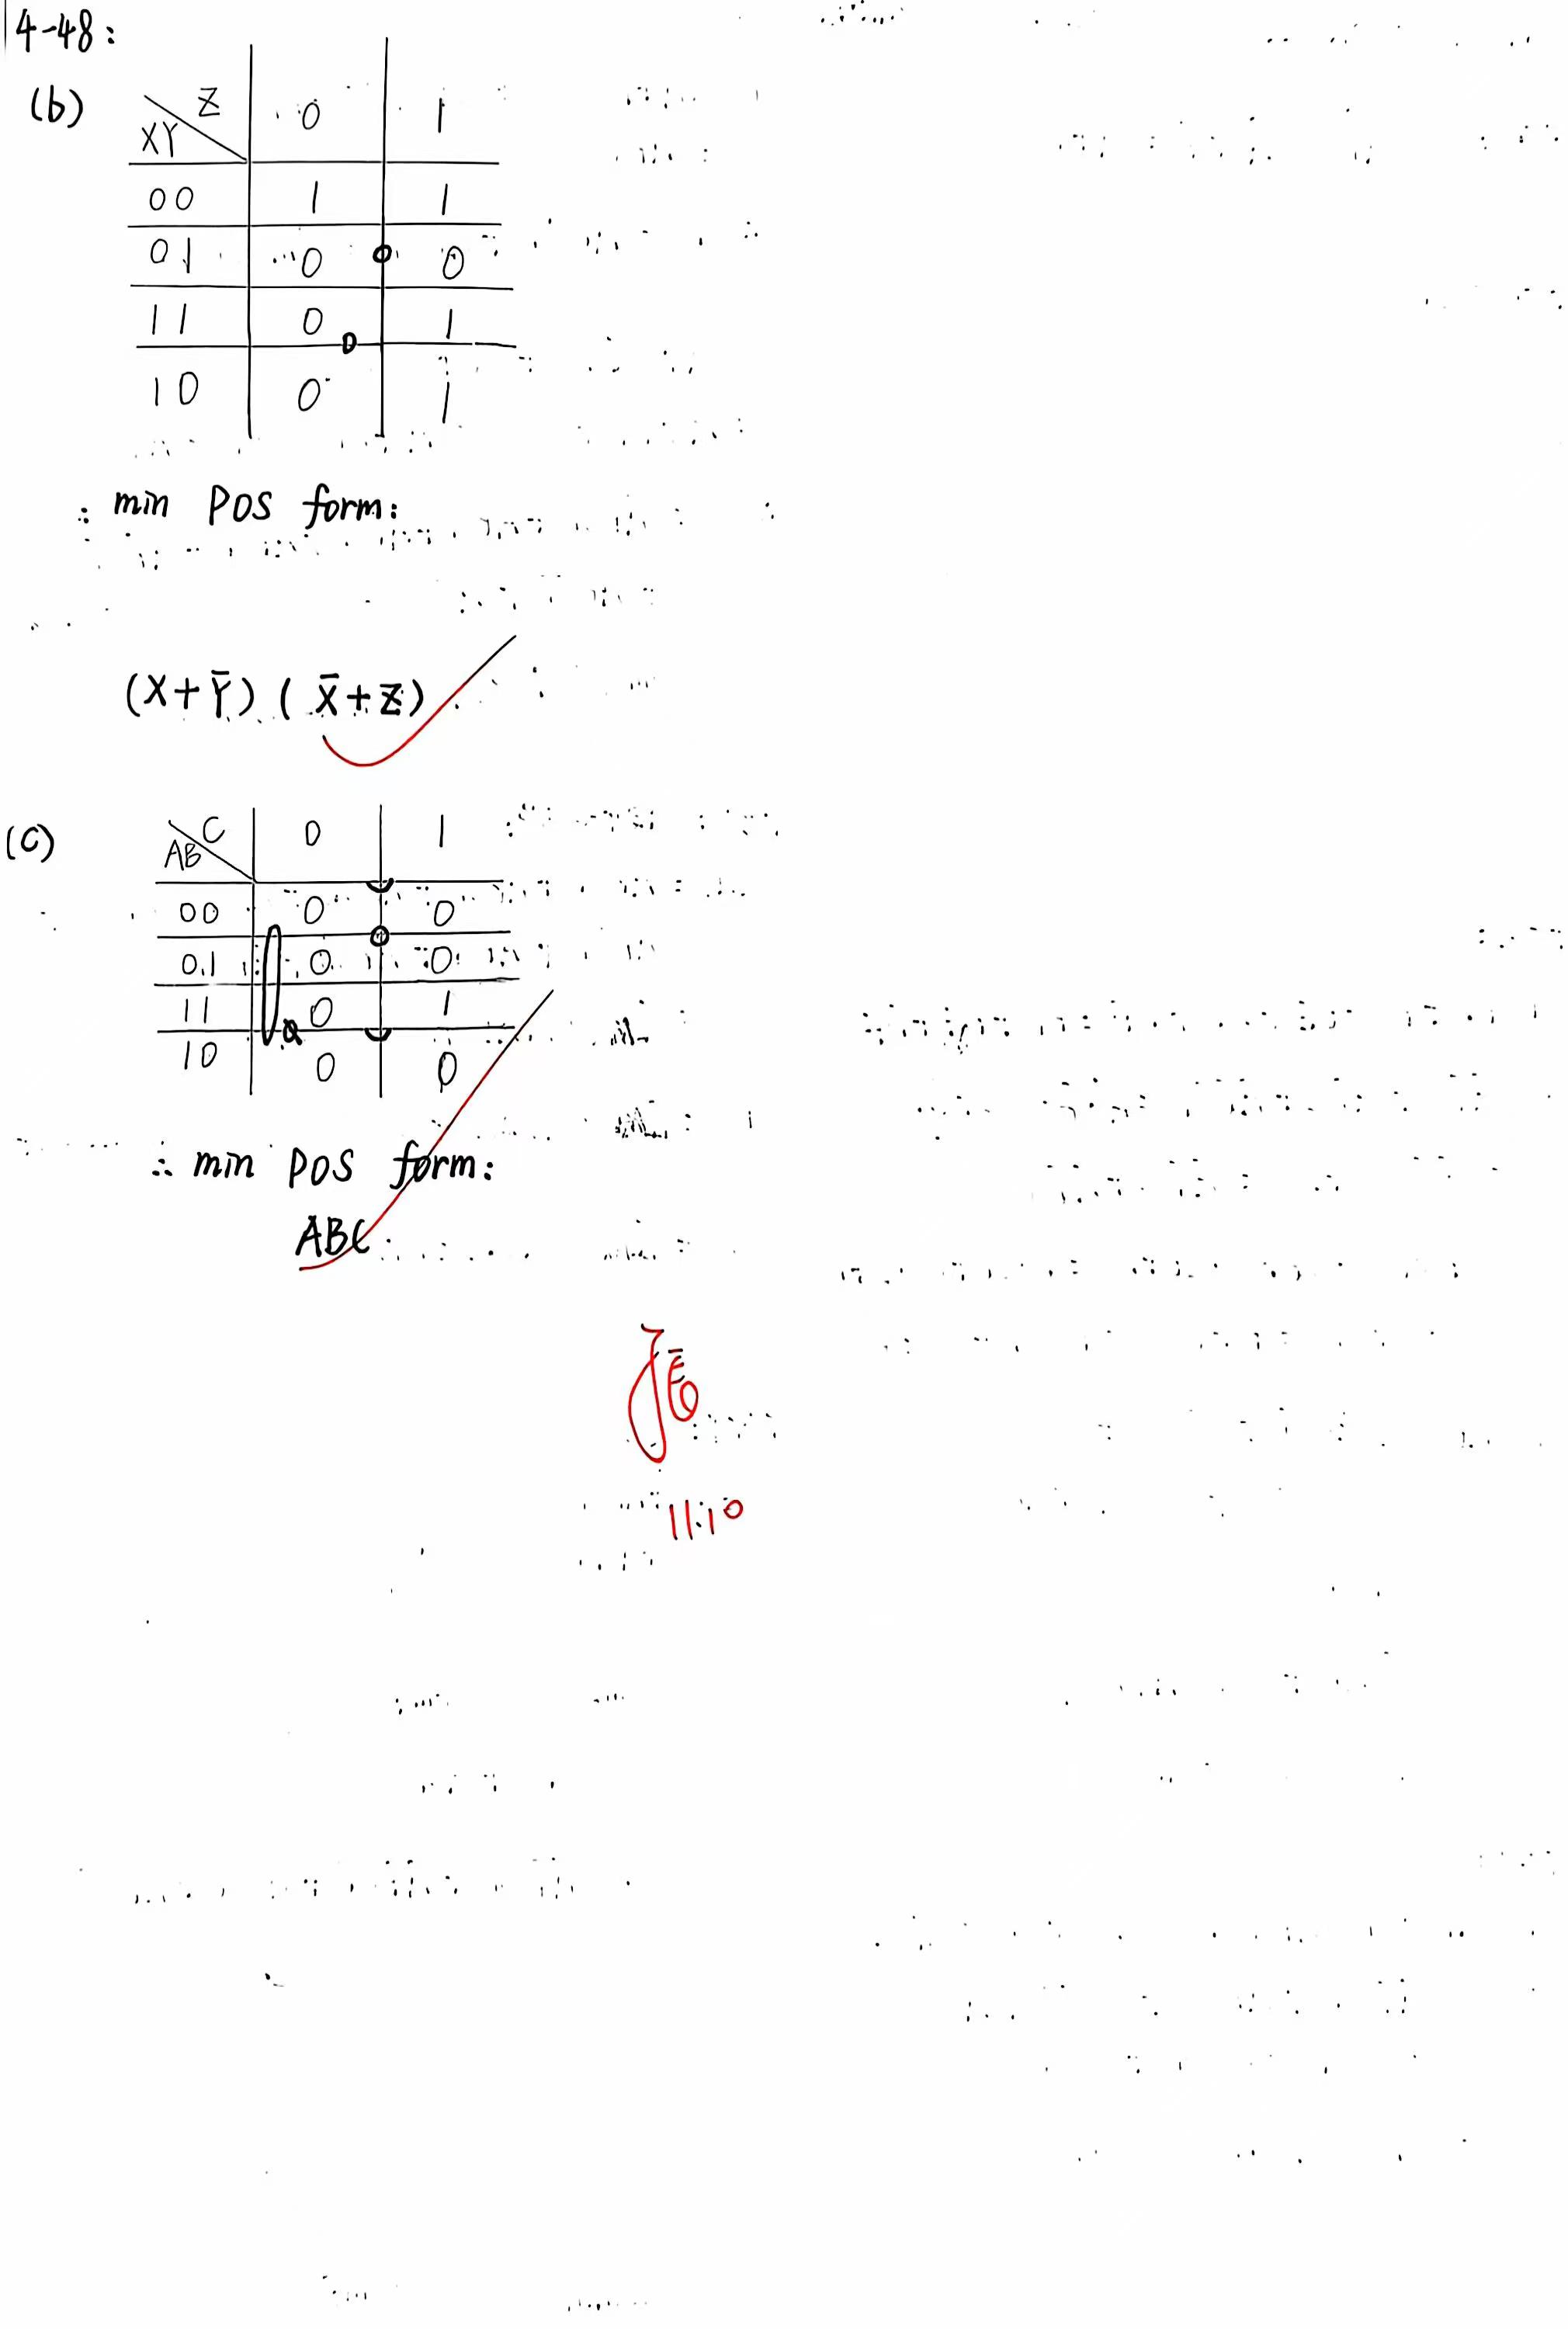 4-48:
(b)
Z 0 1
XY
00 1 1
01 0 0
11 0 1
10 0 1
: min POS form:
(X+Ȳ) (X̄+Z)
(C)
C 0 1
AB
00 0 0
01 0 0
11 0 1
10 0 0
∴ min POS form:
ABC
11.10